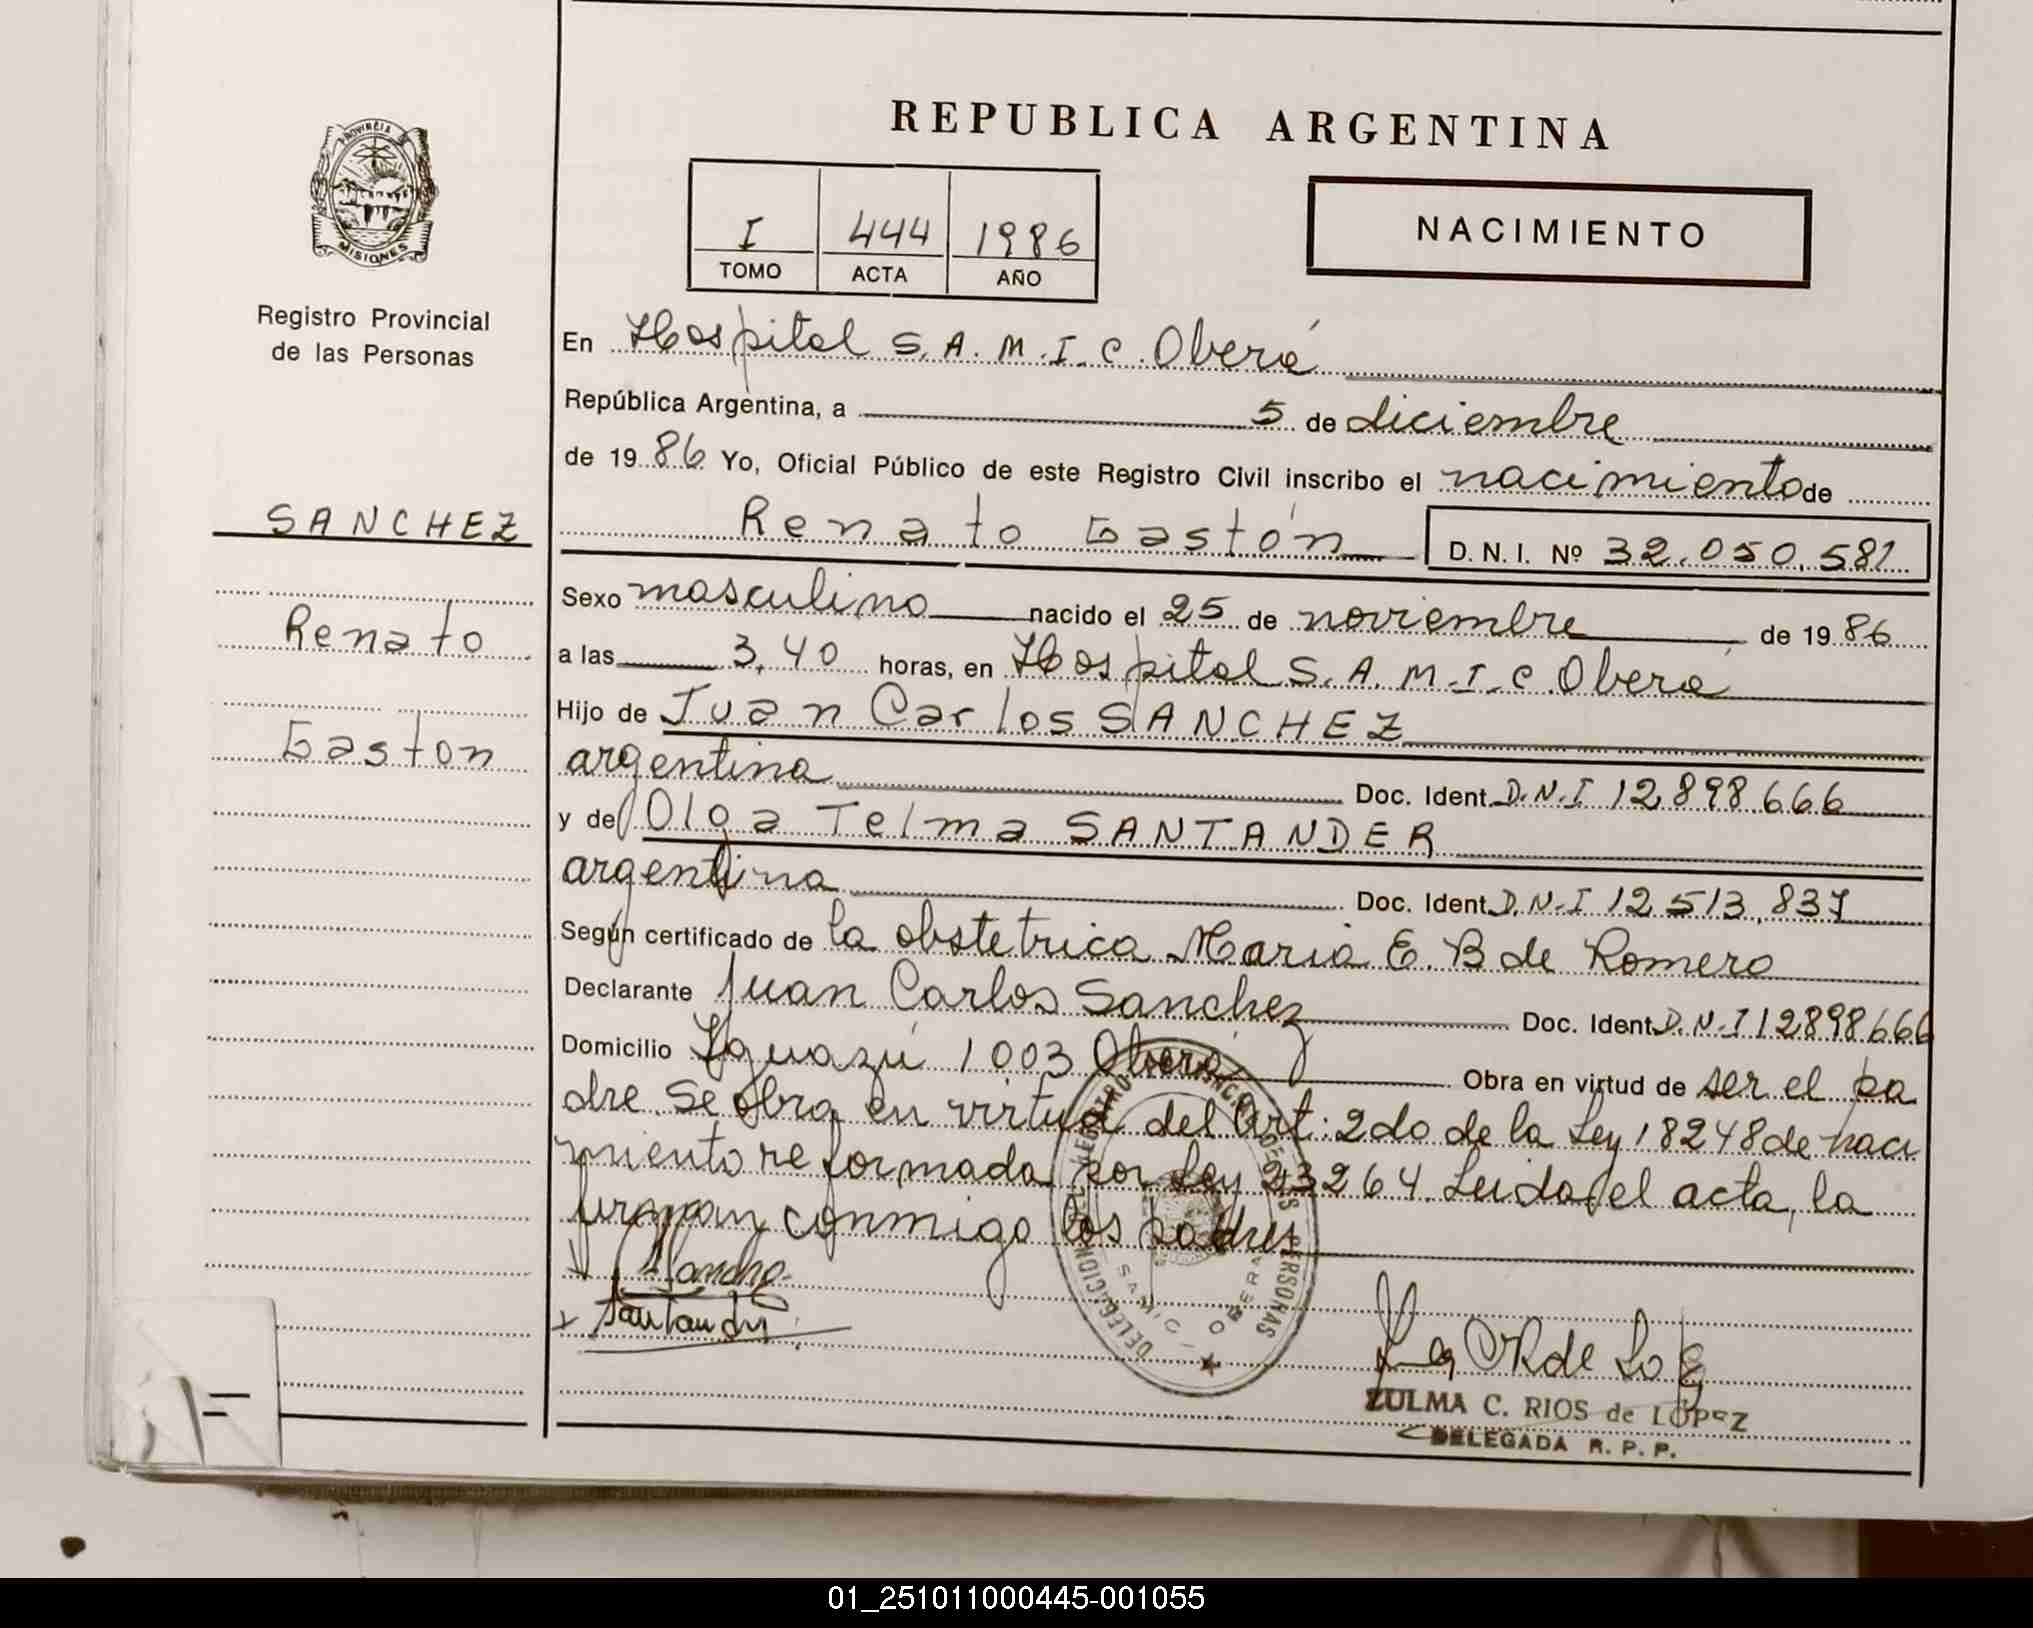 REPUBLICA ARGENTINA
PROVINCIA DE
MISIONES
Registro Provincial
de las Personas
I 444 1986
TOMO ACTA AÑO
NACIMIENTO
En Hospital S. A. M. I. C. Oberá
República Argentina, a 5 de diciembre
de 1986 Yo, Oficial Público de este Registro Civil inscribo el nacimiento de
SANCHEZ
Renato
Gaston
Renato Gastón D. N. I. Nº 32.050.581
Sexo masculino nacido el 25 de noviembre de 1986
a las 3,40 horas, en Hospital S. A. M. I. C. Oberá
Hijo de Juan Carlos SANCHEZ
argentina Doc. Ident. D.N.I 12.898.666
y de Olga Telma SANTANDER
argentina Doc. Ident. D.N.I 12.513.837
Según certificado de la obstetrica Maria E. B de Romero
Declarante Juan Carlos Sanchez Doc. Ident. D.N.I 12898666
Domicilio Yguazú 1003 Oberá Obra en virtud de ser el pa
dre. Se obra en virtud del Art: 2do de la Ley 18248 de naci
miento reformada por Ley 23264. Leida el acta, la
firman conmigo los padres
Santander
DELEGACION SAMIC - OBERA
ZULMA C. RIOS de LOPEZ
DELEGADA R. P. P.
01_251011000445-001055